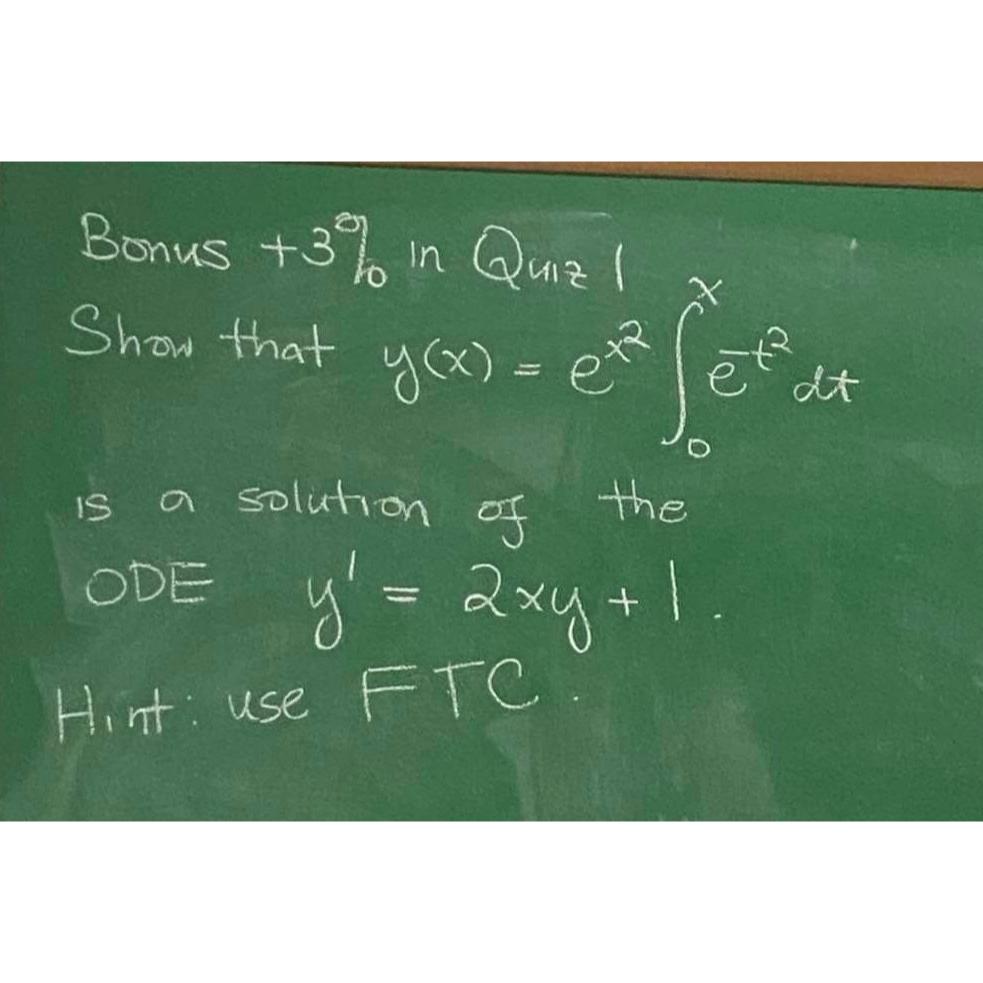 Bonus +3% in Quiz 1
Show that y(x) = e^{x^2} \int_0^x e^{-t^2} dt
is a solution of the
ODE y' = 2xy + 1.
Hint: use FTC.